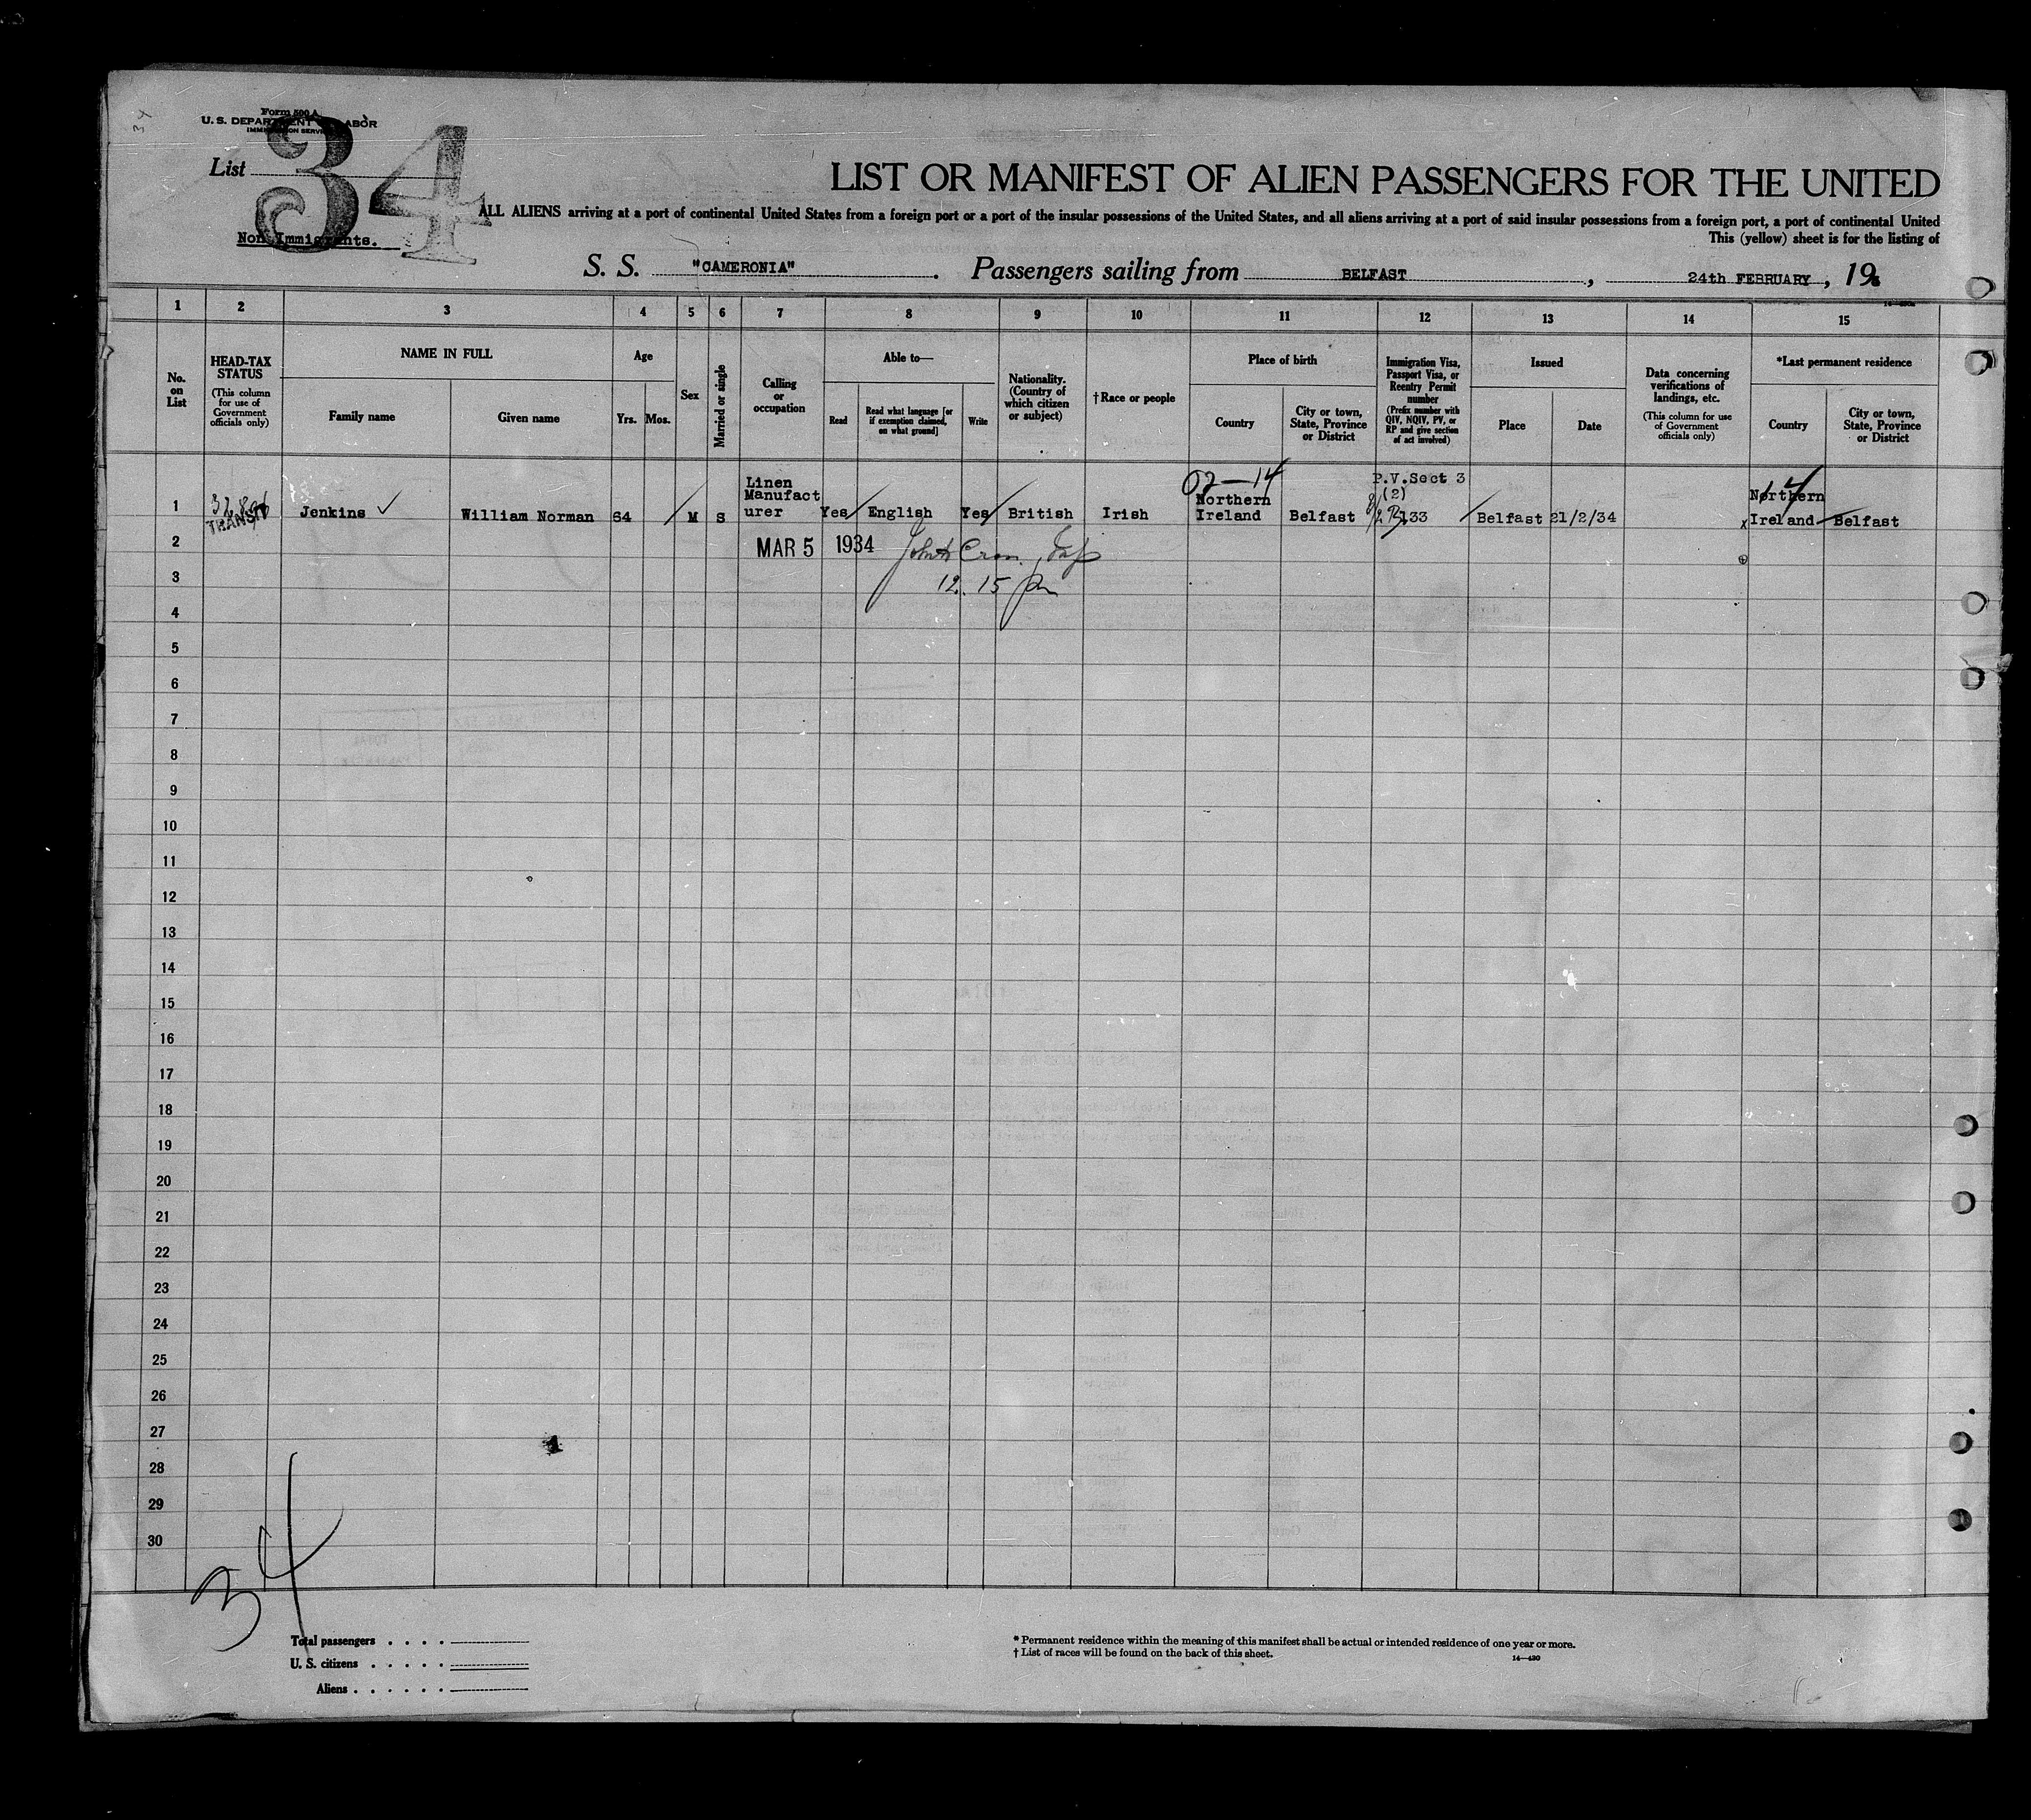 Form 500 A
U. S. DEPARTMENT OF LABOR
IMMIGRATION SERVICE
List
34
Non Immigrants.
LIST OR MANIFEST OF ALIEN PASSENGERS FOR THE UNITED
ALL ALIENS arriving at a port of continental United States from a foreign port or a port of the insular possessions of the United States, and all aliens arriving at a port of said insular possessions from a foreign port, a port of continental United
This (yellow) sheet is for the listing of
S. S. "CAMERONIA". Passengers sailing from BELFAST, 24th FEBRUARY, 19
1 2 3 4 5 6 7 8 9 10 11 12 13 14 15
No. on List
HEAD-TAX STATUS
(This column for use of Government officials only)
NAME IN FULL
Family name
Given name
Age
Yrs. Mos.
Sex
Married or single
Calling or occupation
Able to—
Read
Read what language [or if exemption claimed, on what ground]
Write
Nationality. (Country of which citizen or subject)
†Race or people
Place of birth
Country
City or town, State, Province or District
Immigration Visa, Passport Visa, or Reentry Permit number
(Prefix number with QIV, NQIV, PV, or RP and give section of act involved)
Issued
Place
Date
Data concerning verifications of landings, etc.
(This column for use of Government officials only)
*Last permanent residence
Country
City or town, State, Province or District
02—14
P.V. Sect 3
(2)
14
1 TRANSIT Jenkins ✓ William Norman 64 M S Linen Manufact urer Yes English Yes British Irish Northern Ireland Belfast 133 Belfast 21/2/34 x Northern Ireland Belfast
2 MAR 5 1934
3 12.15 pm
4
5
6
7
8
9
10
11
12
13
14
15
16
17
18
19
20
21
22
23
24
25
26
27
28
29
30
34
Total passengers . . . .
U. S. citizens . . . . .
Aliens . . . . . .
* Permanent residence within the meaning of this manifest shall be actual or intended residence of one year or more.
† List of races will be found on the back of this sheet.
14—430